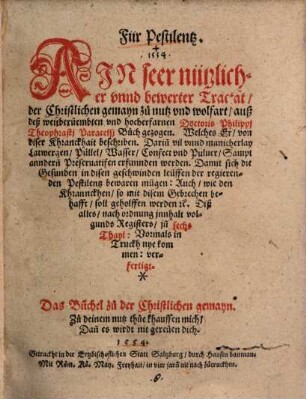 Für Pestilentz.
1554.
AIN seer nützlich-
er vnnd bewerter Tractat/
der Christlichen gemayn zů nutz vnd wolfart/ auß
deß weitberüembten vnd hocherfarnen Doctoris Philippi
Theophrasti Paracelsi Büch gezogen. Welches Er/ von
diser Khranckhait beschriben. Dariñ vil vnnd mancherlay
Latwergen/ Püllel/ Wasser/ Confect vnd Puluer/ Sampt
annderñ Preseruatifen erfunnden werden. Damit sich die
Gesunden in disen geschwinden leüffen der regieren-
den Pestilentz bewaren mügen: Auch/ wie den
Khrannckhen/ so mit disem Gebrechen be-
hafft/ soll geholffen werden ꝛc. Diß
alles/ nach ordnung innhalt vol-
gunds Registers/ zů sechs
Thayl: Vormals in
Truckh nye kom
men: ver-
fertigt.
*
Das Büchel zů der Christlichen gemayn.
Zů deinem nutz thůe khauffen mich/
Dañ es wirdt nit gereüen dich.
1554.
Getruckt in der Ertzbischoflichen Statt Saltzburg/ durch Hansen bauman.
Mit Röm. Kü. May. Freyhait/ in vier jarñ nit nach zůtruckhen.